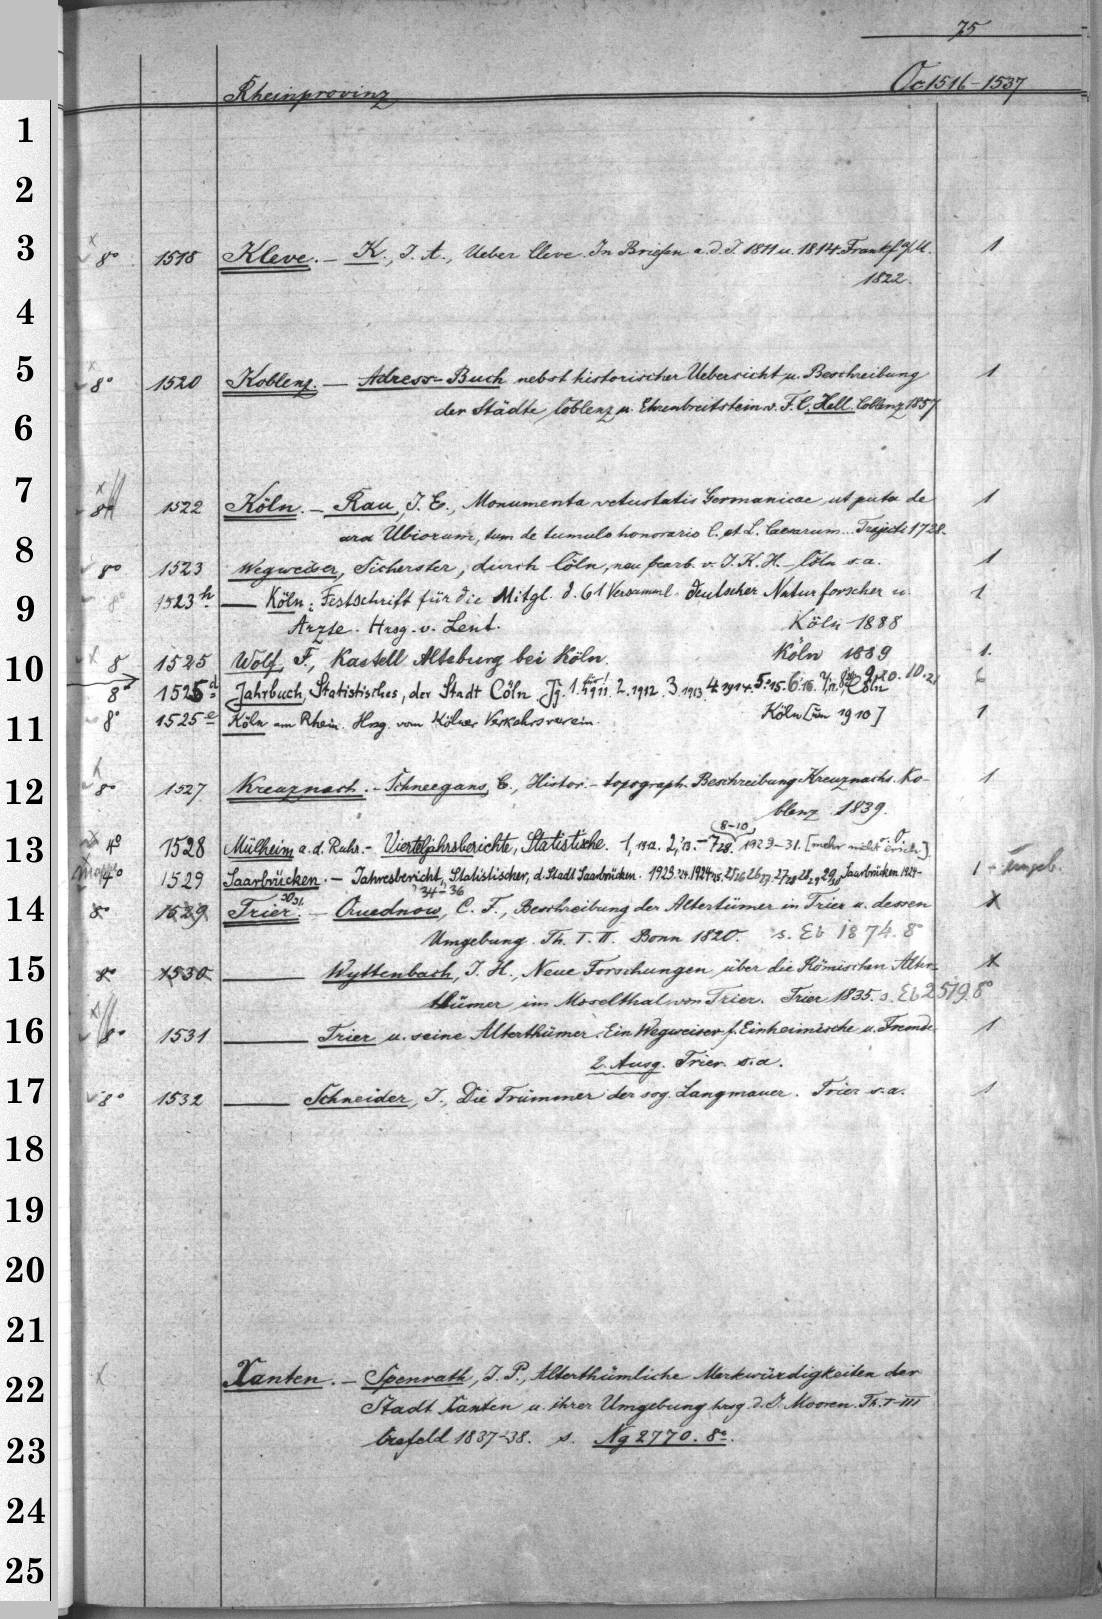 75
Rheinprovinz Oc 1516-1537
1
2
3
8° 1518 Kleve. - K., J. A., Ueber Cleve. In Briefen a. d. J. 1811 u. 1814. Frankf. a/M. 1
1822.
4
5
8° 1520 Koblenz. - Adress-Buch nebst historischer Uebersicht u. Beschreibung 1
der Städte Coblenz u. Ehrenbreitstein v. F. C. Hell. Coblenz 1857
6
7
8° 1522 Köln. - Rau, J. E., Monumenta vetustatis Germanicae, ut puta de 1
ara Ubiorum, tum de tumulo honorario C. et L. Caesarum... Trajecti 1728.
8
8° 1523 Wegweiser, Sicherster, durch Cöln, neu bearb. v. J. K. H. Cöln s. a. 1
9
8° 1523h — Köln: Festschrift für die Mitgl. d. 61 Versamml. deutscher Naturforscher u. 1
Ärzte. Hrsg. v. Lent. Köln 1888
10
8 1525 Wolf, F., Kastell Alteburg bei Köln. Köln 1889 1.
8° 1525d Jahrbuch, Statistisches, der Stadt Cöln Jg. 1. 1911. 2. 1912. 3 1913. 4. 1914. 5. 15. 6. 16. Cöln 6
11
8° 1525e Köln am Rhein. Hrsg. vom Kölner Verkehrsverein. Köln [um 1910] 1
12
8° 1527 Kreuznach. - Schneegans, C., Histor.-topograph. Beschreibung Kreuznachs. Ko- 1
blenz 1839.
8-10
13
4° 1528 Mülheim a. d. Ruhr. - Vierteljahrsberichte, Statistische. 1, 1912. 2, 13. - 7 28. 1929-31. [mehr nicht ersch.]
4° 1529 Saarbrücken. - Jahresbericht, Statistischer, d. Stadt Saarbrücken. 1923. 24. 1924 25. 25 26 26 27 27 28 28 29 29 30 Saarbrücken 1924- 1 - ungeb.
30 31. 34-36
14
8° 1529 Trier. - Quednow, C. F., Beschreibung der Altertümer in Trier u. dessen x
Umgebung. Th. I. II. Bonn 1820. s. Eb 1874. 8°
15
8° 1530 — Wyttenbach, J. H., Neue Forschungen über die Römischen Alter- x
thümer im Moselthal von Trier. Trier 1835. s. Eb 2519. 8°
16
8° 1531 — Trier u. seine Alterthümer. Ein Wegweiser f. Einheimische u. Fremde 1
2. Ausg. Trier s. a.
17
8° 1532 — Schneider, J., Die Trümmer der sog. Langmauer. Trier s. a. 1
18
19
20
21
22
Xanten. - Spenrath, J. P., Alterthümliche Merkwürdigkeiten der
Stadt Xanten u. ihrer Umgebung hrsg. v. J. Mooren. Th. I-III
23
Crefeld 1837-38. s. Ng 2770. 8°.
24
25